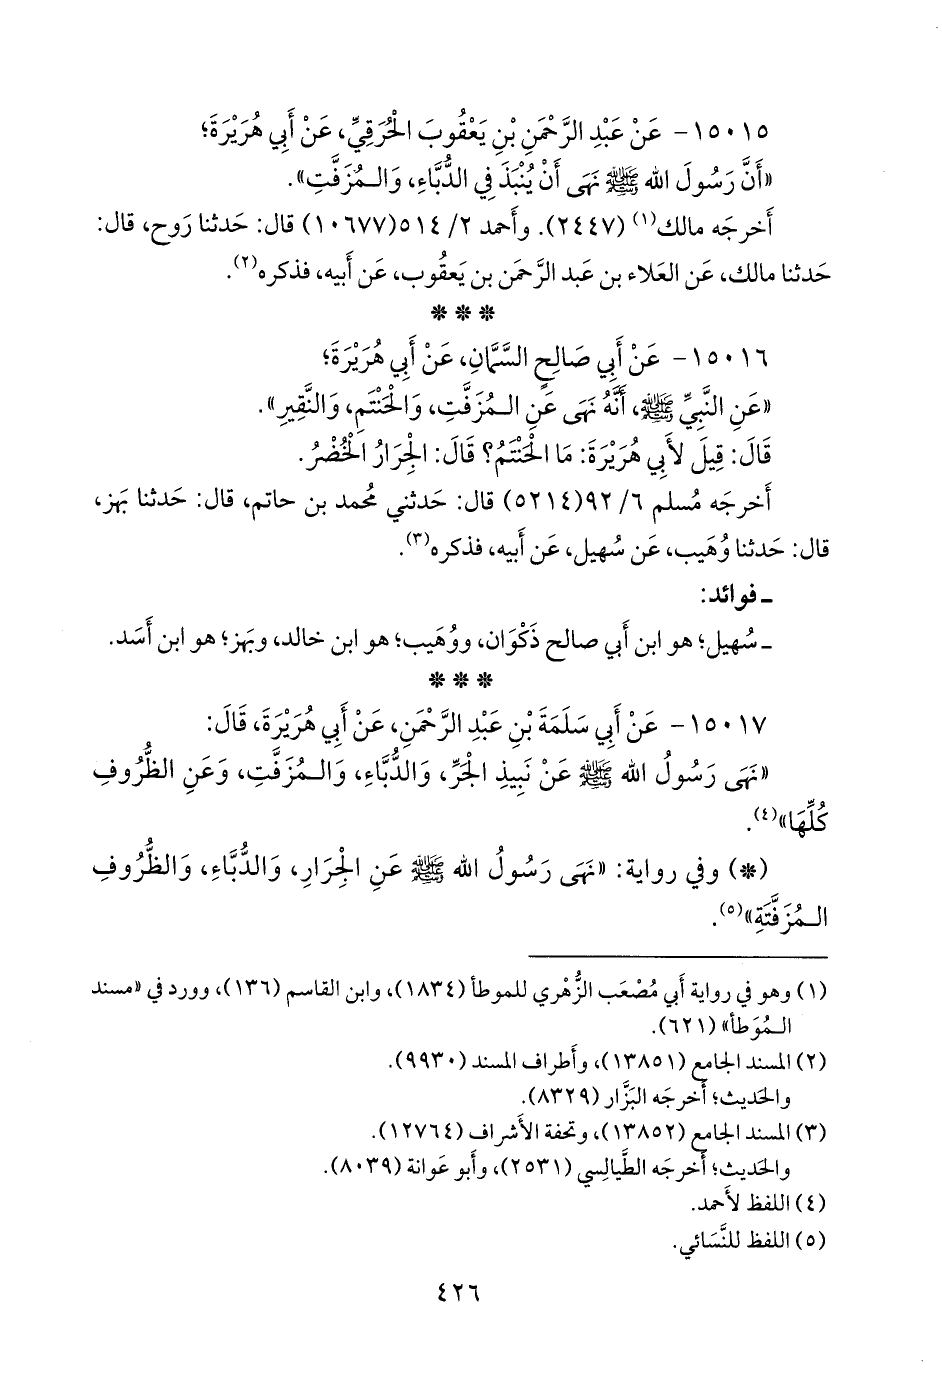 ١٥٠١٥- عَنْ عَبْدِ الرَّحْمَنِ بْنِ يَعْقُوبَ الْحُرَقِيِّ، عَنْ أَبِي هُرَيْرَةَ؛
«أَنَّ رَسُولَ الله ﷺ نَهَى أَنْ يُنْبَذَ فِي الدُّبَّاءِ، وَالـمُزَفَّتِ».
أَخرجَه مالك(١) (٢٤٤٧). وأَحمد ٢/ ٥١٤(١٠٦٧٧) قال: حَدثنا رَوح، قال:
حَدثنا مالك، عَن العَلاء بن عَبد الرَّحمَن بن يَعقُوب، عَن أَبيه، فذكره(٢).
* * *
١٥٠١٦- عَنْ أَبِي صَالِحٍ السَّمَّانِ، عَنْ أَبِي هُرَيْرَةَ؛
«عَنِ النَّبِيِّ ﷺ، أَنَّهُ نَهَى عَنِ الـمُزَفَّتِ، وَالْحَنْتَمِ، وَالنَّقِيرِ».
قَالَ: قِيلَ لأَبِي هُرَيْرَةَ: مَا الْحَنْتَمُ؟ قَالَ: الْجِرَارُ الْخُضْرُ.
أَخرجَه مُسلم ٦/ ٩٢(٥٢١٤) قال: حَدثني مُحمد بن حاتم، قال: حَدثنا بَهز،
قال: حَدثنا وُهَيب، عَن سُهيل، عَن أَبيه، فذكره(٣).
ـ فوائد:
ـ سُهيل؛ هو ابن أَبي صالح ذَكْوَان، ووُهَيب؛ هو ابن خالد، وبَهز؛ هو ابن أَسَد.
* * *
١٥٠١٧- عَنْ أَبِي سَلَمَةَ بْنِ عَبْدِ الرَّحْمَنِ، عَنْ أَبِي هُرَيْرَةَ، قَالَ:
«نَهَى رَسُولُ الله ﷺ عَنْ نَبِيذِ الْجَرِّ، وَالدُّبَّاءِ، وَالـمُزَفَّتِ، وَعَنِ الظُّرُوفِ
كُلِّهَا»(٤).
(*) وفي رواية: «نَهَى رَسُولُ الله ﷺ عَنِ الْجِرَارِ، وَالدُّبَّاءِ، وَالظُّرُوفِ
الـمُزَفَّتَةِ»(٥).
(١) وهو في رواية أَبي مُصْعَب الزُّهْري للموطأ (١٨٣٤)، وابن القاسم (١٣٦)، وورد في «مسند
الـمُوَطأ» (٦٢١).
(٢) المسند الجامع (١٣٨٥١)، وأَطراف المسند (٩٩٣٠).
والحَديث؛ أَخرجَه البَزَّار (٨٣٢٩).
(٣) المسند الجامع (١٣٨٥٢)، وتحفة الأَشراف (١٢٧٦٤).
والحَديث؛ أَخرجَه الطَّيالِسي (٢٥٣١)، وأَبو عَوانة (٨٠٣٩).
(٤) اللفظ لأَحمد.
(٥) اللفظ للنَّسَائي.
٤٢٦